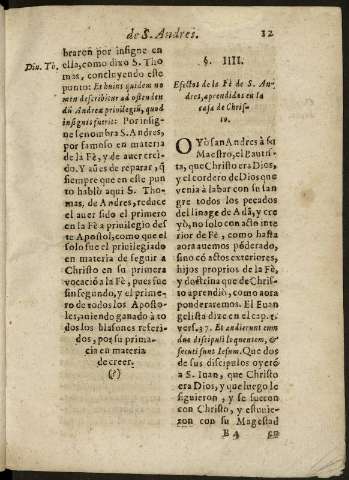 de S. Andres.
12
braren por insigne en
ella, como dixo S. Tho
mas, concluyendo este
punto: Et huius quidem no
men describitur ad ostenden
dũ Andreæ privilegiũ, quod
insignis fuerit: Por insig
ne se nombra S. Andres,
por famoso en materia
de la Fè, y de auer crei-
do. Y aũ es de reparar, q̃
siempre que en este pun
to hablò aqui S. Tho
mas, de Andres, reduce
el auer sido el primero
en la Fè a priuilegio des
te Apostol, como que el
solo fue el privilegiado
en materia de seguir a
Christo en su primera
vocació a la Fè, pues fue
sin segundo, y el prime-
ro de todos los Aposto-
les, auiendo ganado à to
dos los blasones referi
dos, por su prima-
cia en materia
de creer.
(?)
Div. Tò.
§. IIII.
Efectos de la Fè de S. An-
dres, aprendidos en la
casa de Chris-
to.
OYò san Andres à su
Maestro, el Bautis
ta, que Christo era Dios,
y el cordero de Dios que
venia à labar con su san
gre todos los pecados
del linage de Adã, y cre
yò, no solo con acto inte
rior de Fè, como hasta
aora auemos põderado,
sino cõ actos exteriores,
hijos proprios de la Fè,
y doctrina que de Chris-
to aprendiò, como aora
ponderaremos. El Euan
gelista dize en el cap. 1.
vers. 37. Et audierunt eum
duo discipuli loquentem, &
secuti sunt Iesum. Que dos
de sus discipulos oyerõ
a S. Iuan, que Christo
era Dios, y que luego le
siguieron, y se fueron
con Christo, y estuuie-
ron con su Magestad
B 4
en